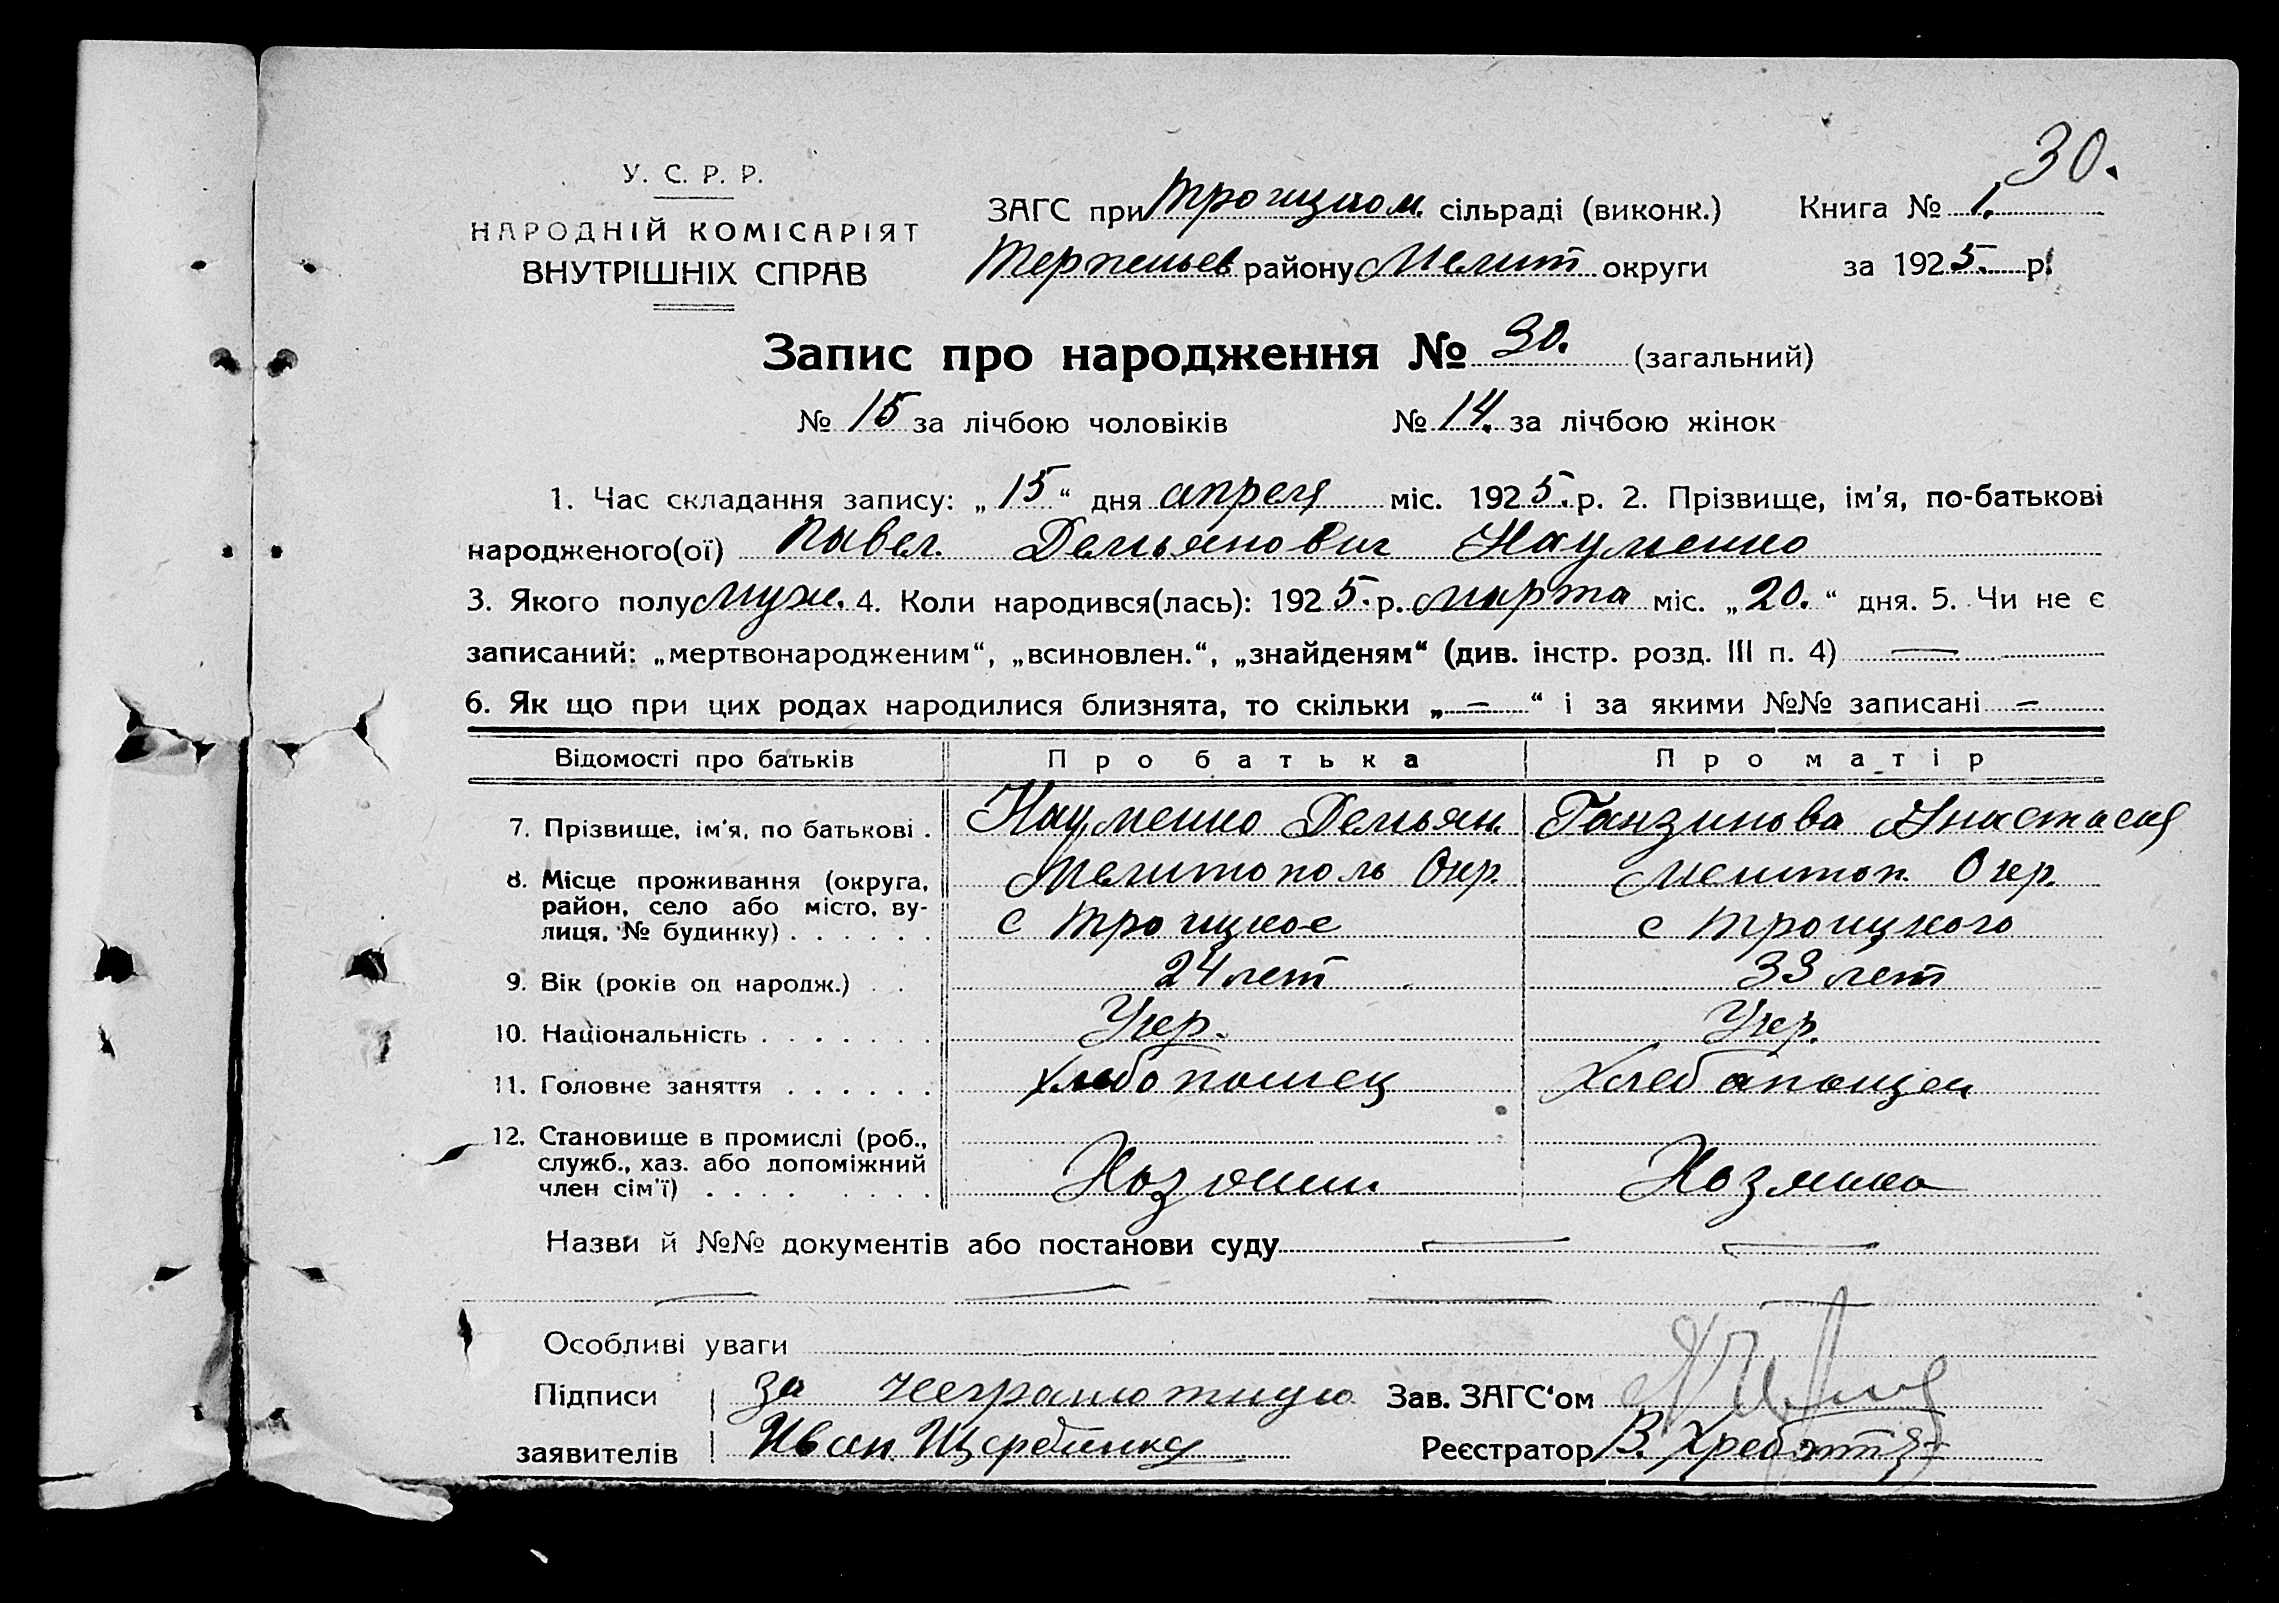 30.
У. С. Р. Р.
НАРОДНІЙ КОМІСАРІЯТ
ВНУТРІШНІХ СПРАВ
ЗАГС при Троицком. сільраді (виконк.) Книга № 1.
Терпеньев району Мелит округи за 1925. р.
Запис про народження № 30. (загальний)
№ 15 за лічбою чоловіків № 14. за лічбою жінок
1. Час складання запису: „15“ дня апреля міс. 1925. р. 2. Прізвище, ім'я, по-батькові
народженого(ої) Павел Демьянович Науменко
3. Якого полу муж. 4. Коли народився(лась): 1925. р. марта міс. „20.“ дня. 5. Чи не є
записаний: „мертвонародженим“, „всиновлен.“, „знайденям“ (див. інстр. розд. III п. 4) —
6. Як що при цих родах народилися близнята, то скільки „—“ і за якими №№ записані —
Відомості про батьків Про батька Про матір
7. Прізвище, ім'я, по батькові . Науменко Демьян Ганзинова Анастасия
8. Місце проживання (округа, Мелитополь Окр. Мелитоп. Окр.
район, село або місто, ву- с Троицкое с Троицкого
лиця, № будинку) . . . . . .
9. Вік (років од народж.) . . 24 лет 33 лет
10. Національність . . . . . . . Укр. Укр.
11. Головне заняття . . . . . . Хлебопашец Хлебапащец
12. Становище в промислі (роб.,
служб., хаз. або допоміжний
член сім'ї) . . . . . . . . Хозяин Хозяика
Назви й №№ документів або постанови суду — —
— — — —
Особливі уваги
Підписи за неграмотную Зав. ЗАГС'ом
заявителів Иван Щербинка Реєстратор В. Хребтятя